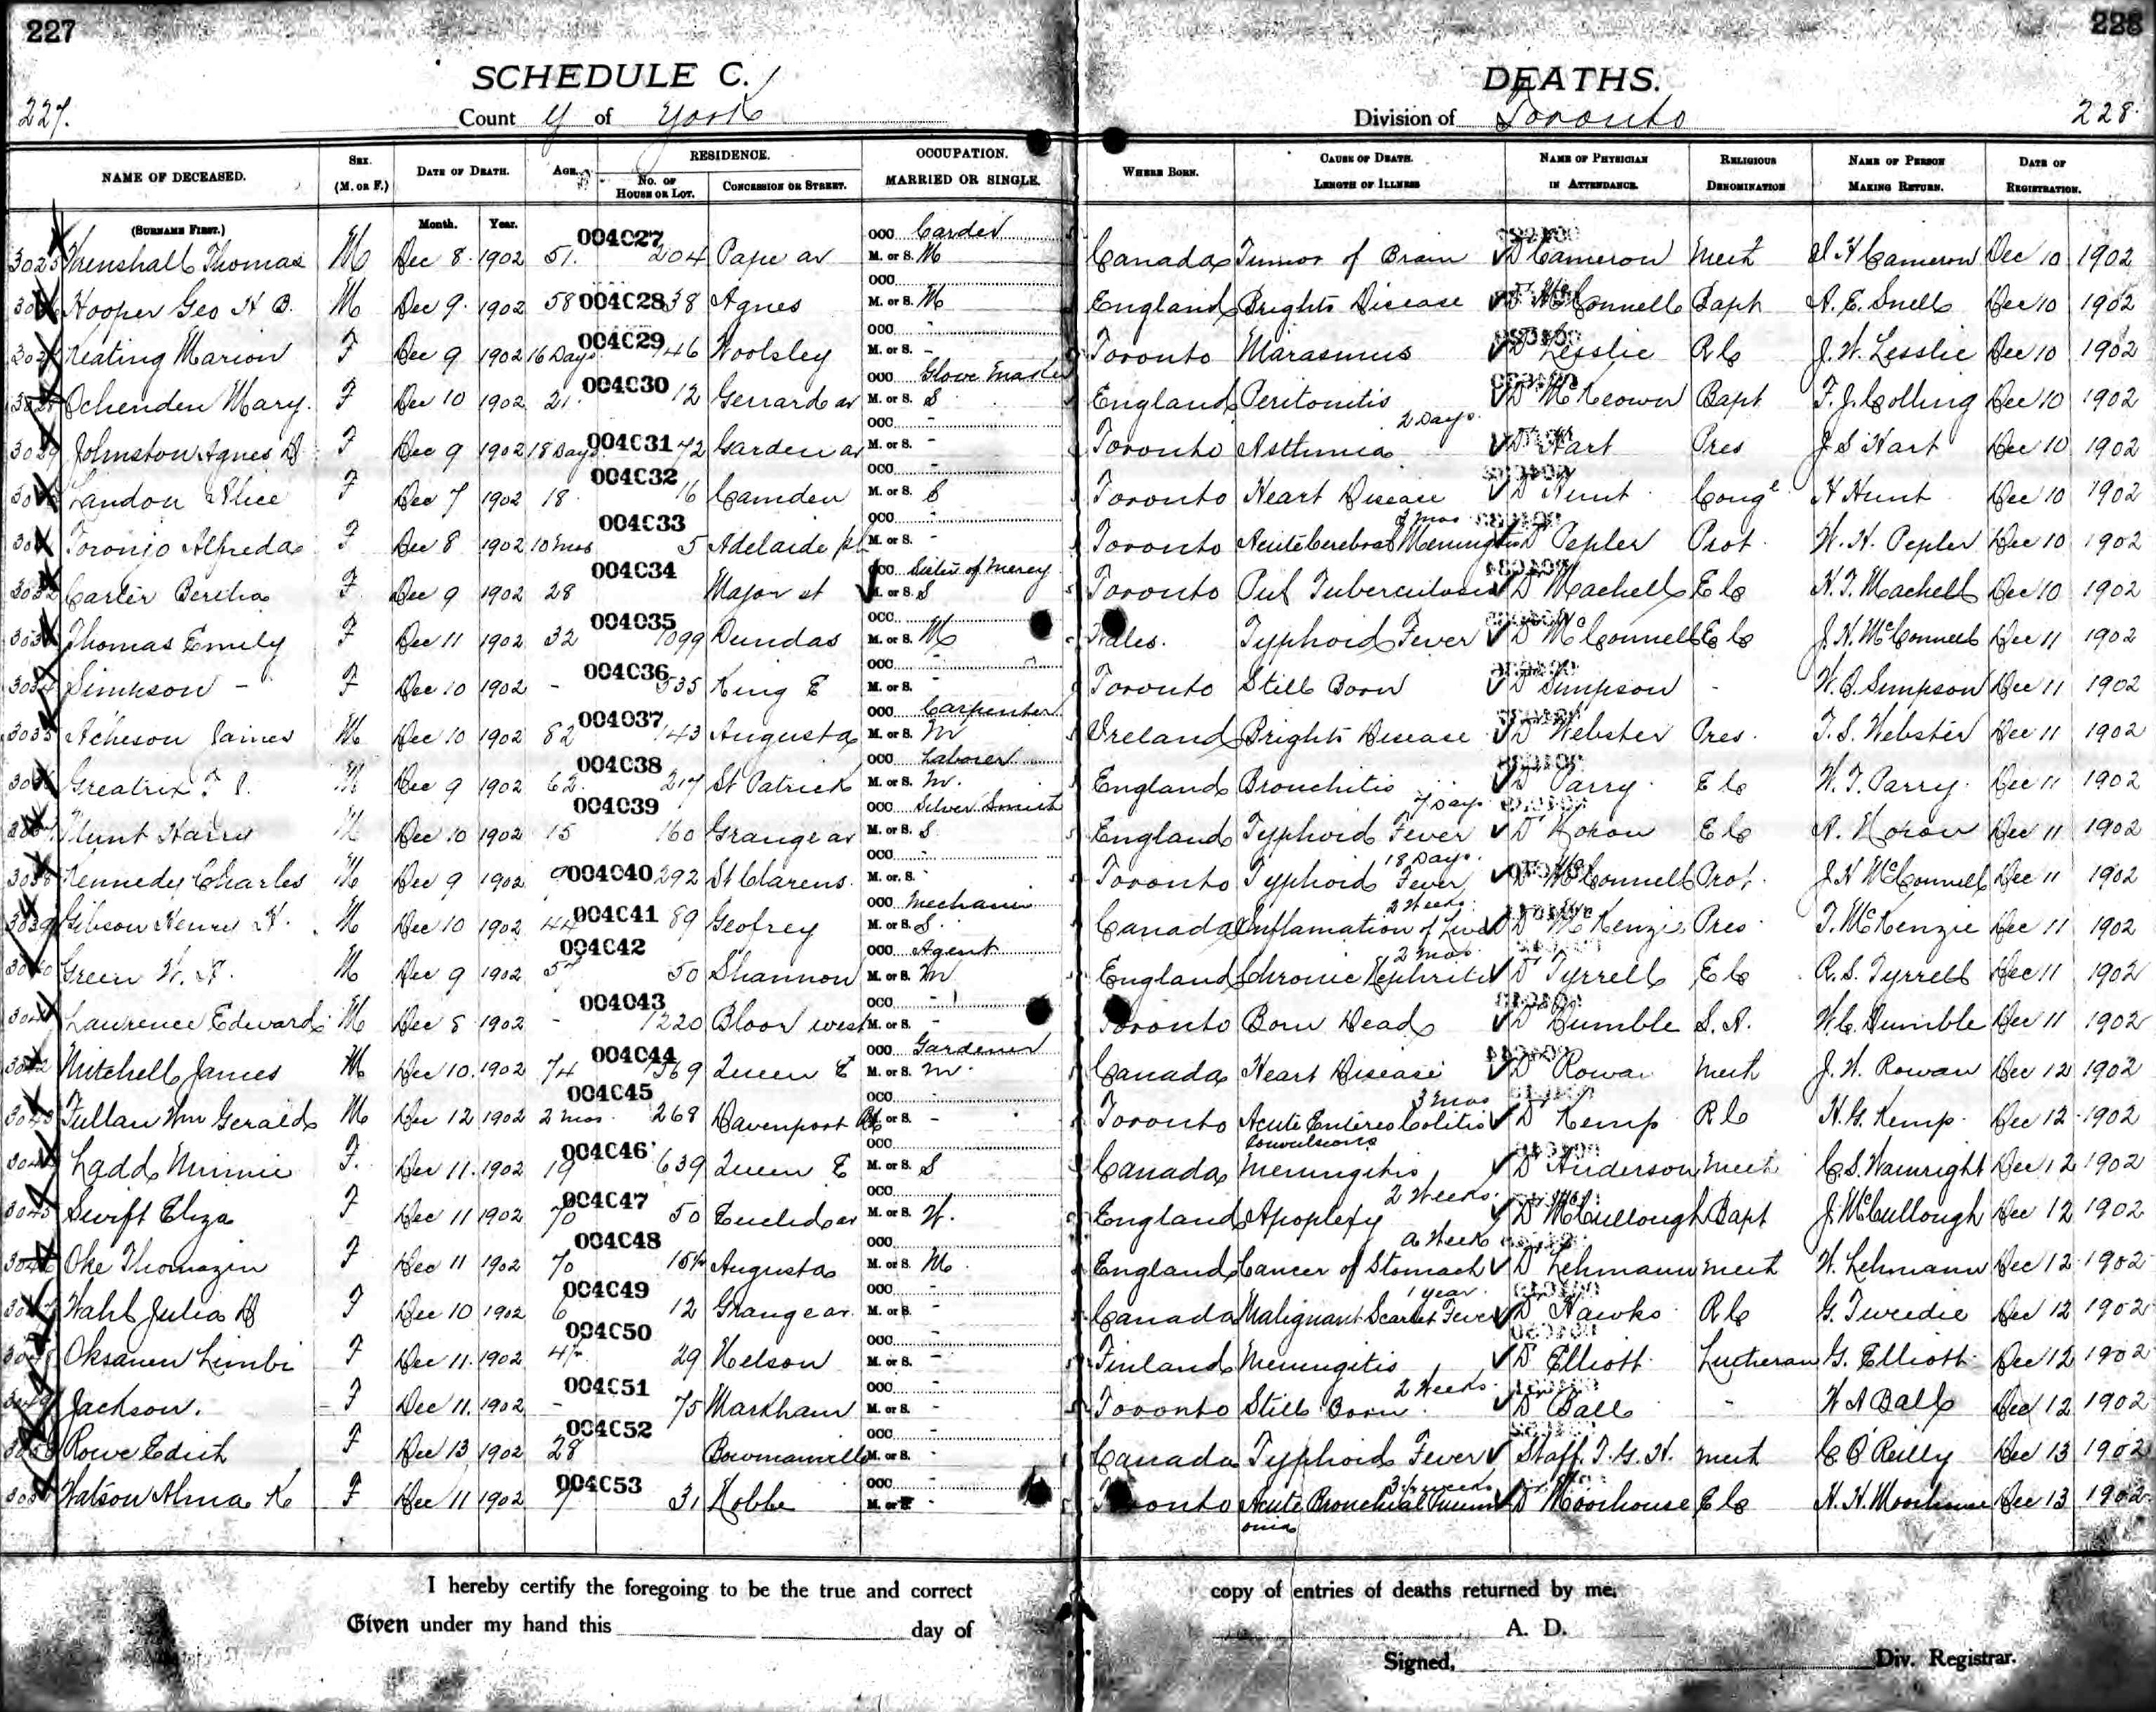 227
228
SCHEDULE C.
DEATHS.
227.
County of York
Division of Toronto
228.
NAME OF DECEASED. SEX. (M. OR F.) DATE OF DEATH. AGE. RESIDENCE. NO. OF HOUSE OR LOT. CONCESSION OR STREET. OCCUPATION. MARRIED OR SINGLE. WHERE BORN. CAUSE OF DEATH. LENGTH OF ILLNESS NAME OF PHYSICIAN IN ATTENDANCE. RELIGIOUS DENOMINATION NAME OF PERSON MAKING RETURN. DATE OF REGISTRATION.
(SURNAME FIRST.) Month. Year.
3025 Henshall Thomas M Dec 8 1902 51 004C27 204 Pape av OCC Carder M. or S. M Canada Tumor of Brain D Cameron Meth I H Cameron Dec 10 1902
Hooper Geo H B. M Dec 9 1902 58 004C28 38 Agnes OCC M. or S. M England Brights Disease D McConnell Bapt A. E. Snell Dec 10 1902
Keating Marion F Dec 9 1902 16 Days 004C29 146 Woolsley OCC - M. or S. - Toronto Marasmus D Lesslie R C J. W. Lesslie Dec 10 1902
Ochenden Mary. F Dec 10 1902 21 004C30 12 Gerrard av OCC Glove Maker M. or S. S England Peritonitis 2 Days D McKeown Bapt F. J. Colling Dec 10 1902
3029 Johnston Agnes D F Dec 9 1902 18 Days 004C31 72 Garden av OCC - M. or S. - Toronto Asthmia D Hart Pres J S Hart Dec 10 1902
Landon Alice F Dec 7 1902 18 004C32 16 Camden OCC - M. or S. S Toronto Heart Disease 3 mos D Hunt Cong H Hunt Dec 10 1902
Toronjo Alfreda F Dec 8 1902 10 mos 004C33 5 Adelaide pl OCC - M. or S. - Toronto Acute Cerebral Meningitis D Pepler Prot W. H. Pepler Dec 10 1902
3032 Carter Bertha F Dec 9 1902 28 004C34 Major st OCC Sister of Mercy M. or S. S Toronto Pul Tuberculosis D Machell E C H. T. Machell Dec 10 1902
Thomas Emily F Dec 11 1902 32 004C35 1099 Dundas OCC M. or S. M Wales. Typhoid Fever D McConnell E C J. H. McConnell Dec 11 1902
3034 Simpson - F Dec 10 1902 - 004C36 535 King E OCC - M. or S. - Toronto Still Born D Simpson - W. B. Simpson Dec 11 1902
3035 Acheson James M Dec 10 1902 82 004037 143 Augusta OCC Carpenter M. or S. M Ireland Brights Disease D Webster Pres T. S. Webster Dec 11 1902
Greatrix M Dec 9 1902 62 004C38 217 St Patrick OCC Laborer M. or S. M. England Bronchitis 7 Days D Parry E C W. T. Parry Dec 11 1902
Harry M Dec 10 1902 15 004C39 160 Grange av OCC Silver Smith M. or S. S England Typhoid Fever 18 Days D E C Dec 11 1902
Kennedy Charles M Dec 9 1902 004C40 292 St Clarens OCC - M. or S. - Toronto Typhoid Fever 2 Weeks D McConnell Prot J H McConnell Dec 11 1902
3039 Gibson Henry H. M Dec 10 1902 44 004C41 89 Geofrey OCC Mechanic M. or S. S Canada Inflamation of Liver 2 mos D McKenzie Pres T. McKenzie Dec 11 1902
Green W. F. M Dec 9 1902 004C42 50 Shannon OCC Agent M. or S. M England Chronic Nephritis D Tyrrell E C R. S. Tyrrell Dec 11 1902
Lawrence Edward M Dec 8 1902 - 004043 1220 Bloor west OCC - M. or S. - Toronto Born Dead D Dumble S. A. W. C. Dumble Dec 11 1902
Mitchell James M Dec 10 1902 74 004C44 369 Queen E OCC Gardener M. or S. M Canada Heart Disease 3 mos D Rowan Meth J. W. Rowan Dec 12 1902
Fullan Wm Gerald M Dec 12 1902 2 mos 004C45 268 Davenport Rd OCC M. or S. - Toronto Acute Entireo Colitis Convulsions D Kemp R C H. G. Kemp Dec 12 1902
Ladd Minnie F. Dec 11 1902 19 004C46 639 Queen E OCC M. or S. S Canada Meningitis 2 Weeks D Anderson Meth C. S. Wainright Dec 12 1902
3045 Swift Eliza F Dec 11 1902 70 004C47 50 Euclid av OCC M. or S. W. England Apoplexy a Week D McCullough Bapt J. McCullough Dec 12 1902
Oke Thomazin F Dec 11 1902 70 004C48 Augusta OCC M. or S. M England Cancer of Stomach 1 year D Lehmann Meth W. Lehmann Dec 12 1902
Wahl Julia D F Dec 10 1902 6 004C49 12 Grange av OCC M. or S. - Canada Malignant Scarlet Fever D Hawks R C G. Tweedie Dec 12 1902
Oksanen Limbi F Dec 11 1902 004C50 29 Nelson OCC - M. or S. - Finland Meningitis 2 Weeks D Elliott Lutheran G. Elliott Dec 12 1902
Jackson. F Dec 11 1902 - 004C51 75 Markham OCC - M. or S. - Toronto Still Born D Ball - W A Ball Dec 12 1902
Rowe Edith F Dec 13 1902 28 004C52 Bowmanville OCC M. or S. - Canada Typhoid Fever 3½ weeks Staff T. G. H. Meth C O'Reilly Dec 13 1902
Watson Alma K F Dec 11 1902 7 004C53 31 OCC - M. or S. - Toronto Acute Bronchial Pneumonia D Moorhouse E C H. H. Moorhouse Dec 13 1902
I hereby certify the foregoing to be the true and correct copy of entries of deaths returned by me.
Given under my hand this day of A. D.
Signed, Div. Registrar.